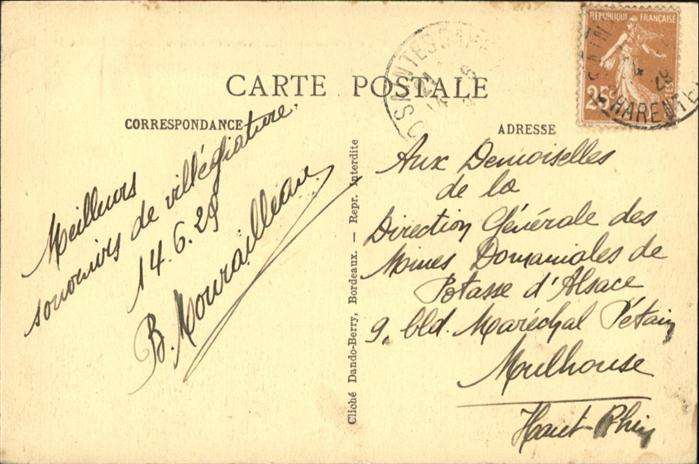 CARTE POSTALE
CORRESPONDANCE
ADRESSE
Meilleurs
souvenirs de villégiature.
14.6.29
B. Mourailleau
Cliché Dando-Berry, Bordeaux. — Repr. Interdite
RÉPUBLIQUE FRANÇAISE
25c
SAINTES GARE
CHARENTE
Aux Demoiselles
de la
Direction Générale des
Mines Domaniales de
Potasse d'Alsace
9, bld. Maréchal Pétain
Mulhouse
Haut-Rhin